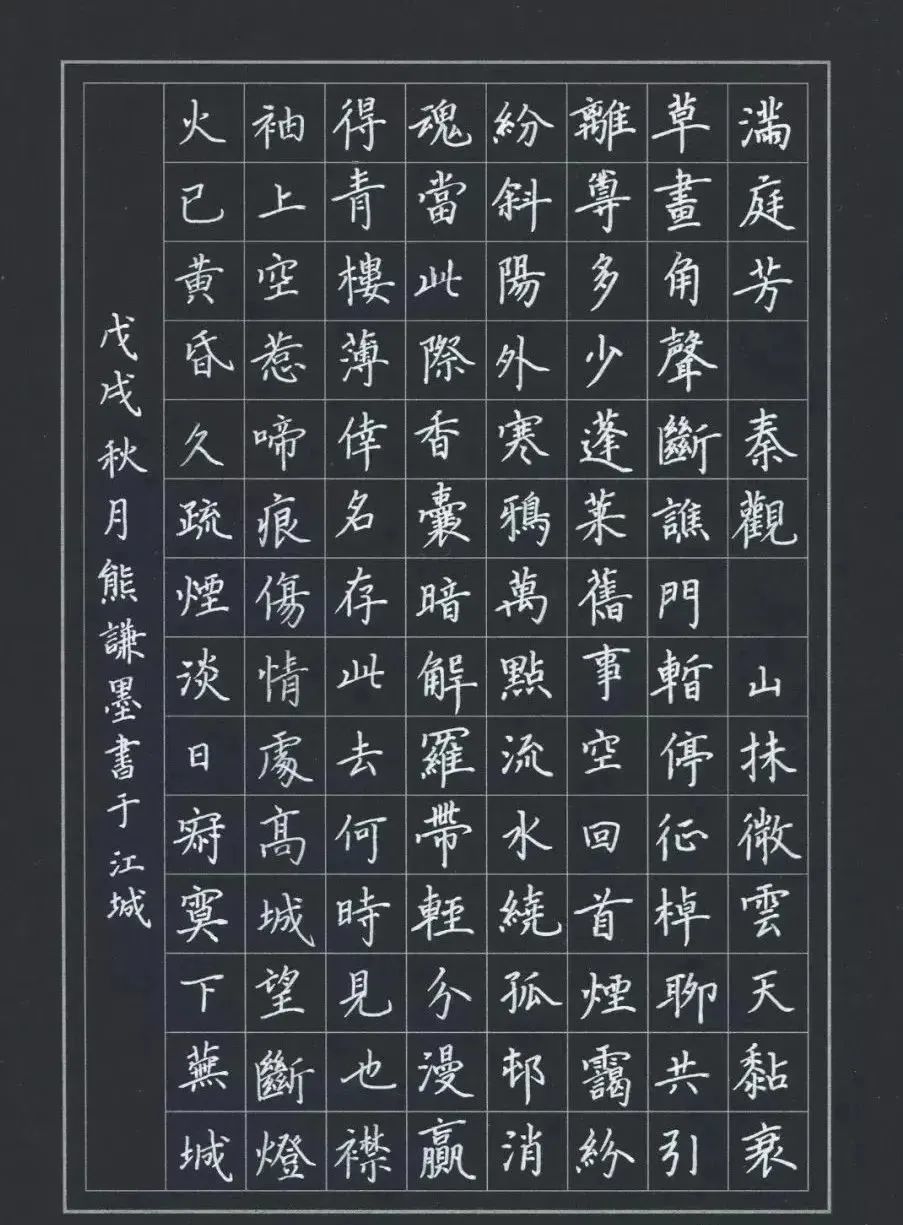 滿庭芳 秦觀 山抹微雲天黏衰
草畫角聲斷譙門暫停征棹聊共引
離尊多少蓬萊舊事空回首煙靄紛
紛斜陽外寒鴉萬點流水繞孤邨消
魂當此際香囊暗解羅帶輕分漫贏
得青樓薄倖名存此去何時見也襟
袖上空惹啼痕傷情處髙城望斷燈
火已黃昏久疏煙淡日寂寞下蕪城
戊戌秋月熊謙墨書于江城